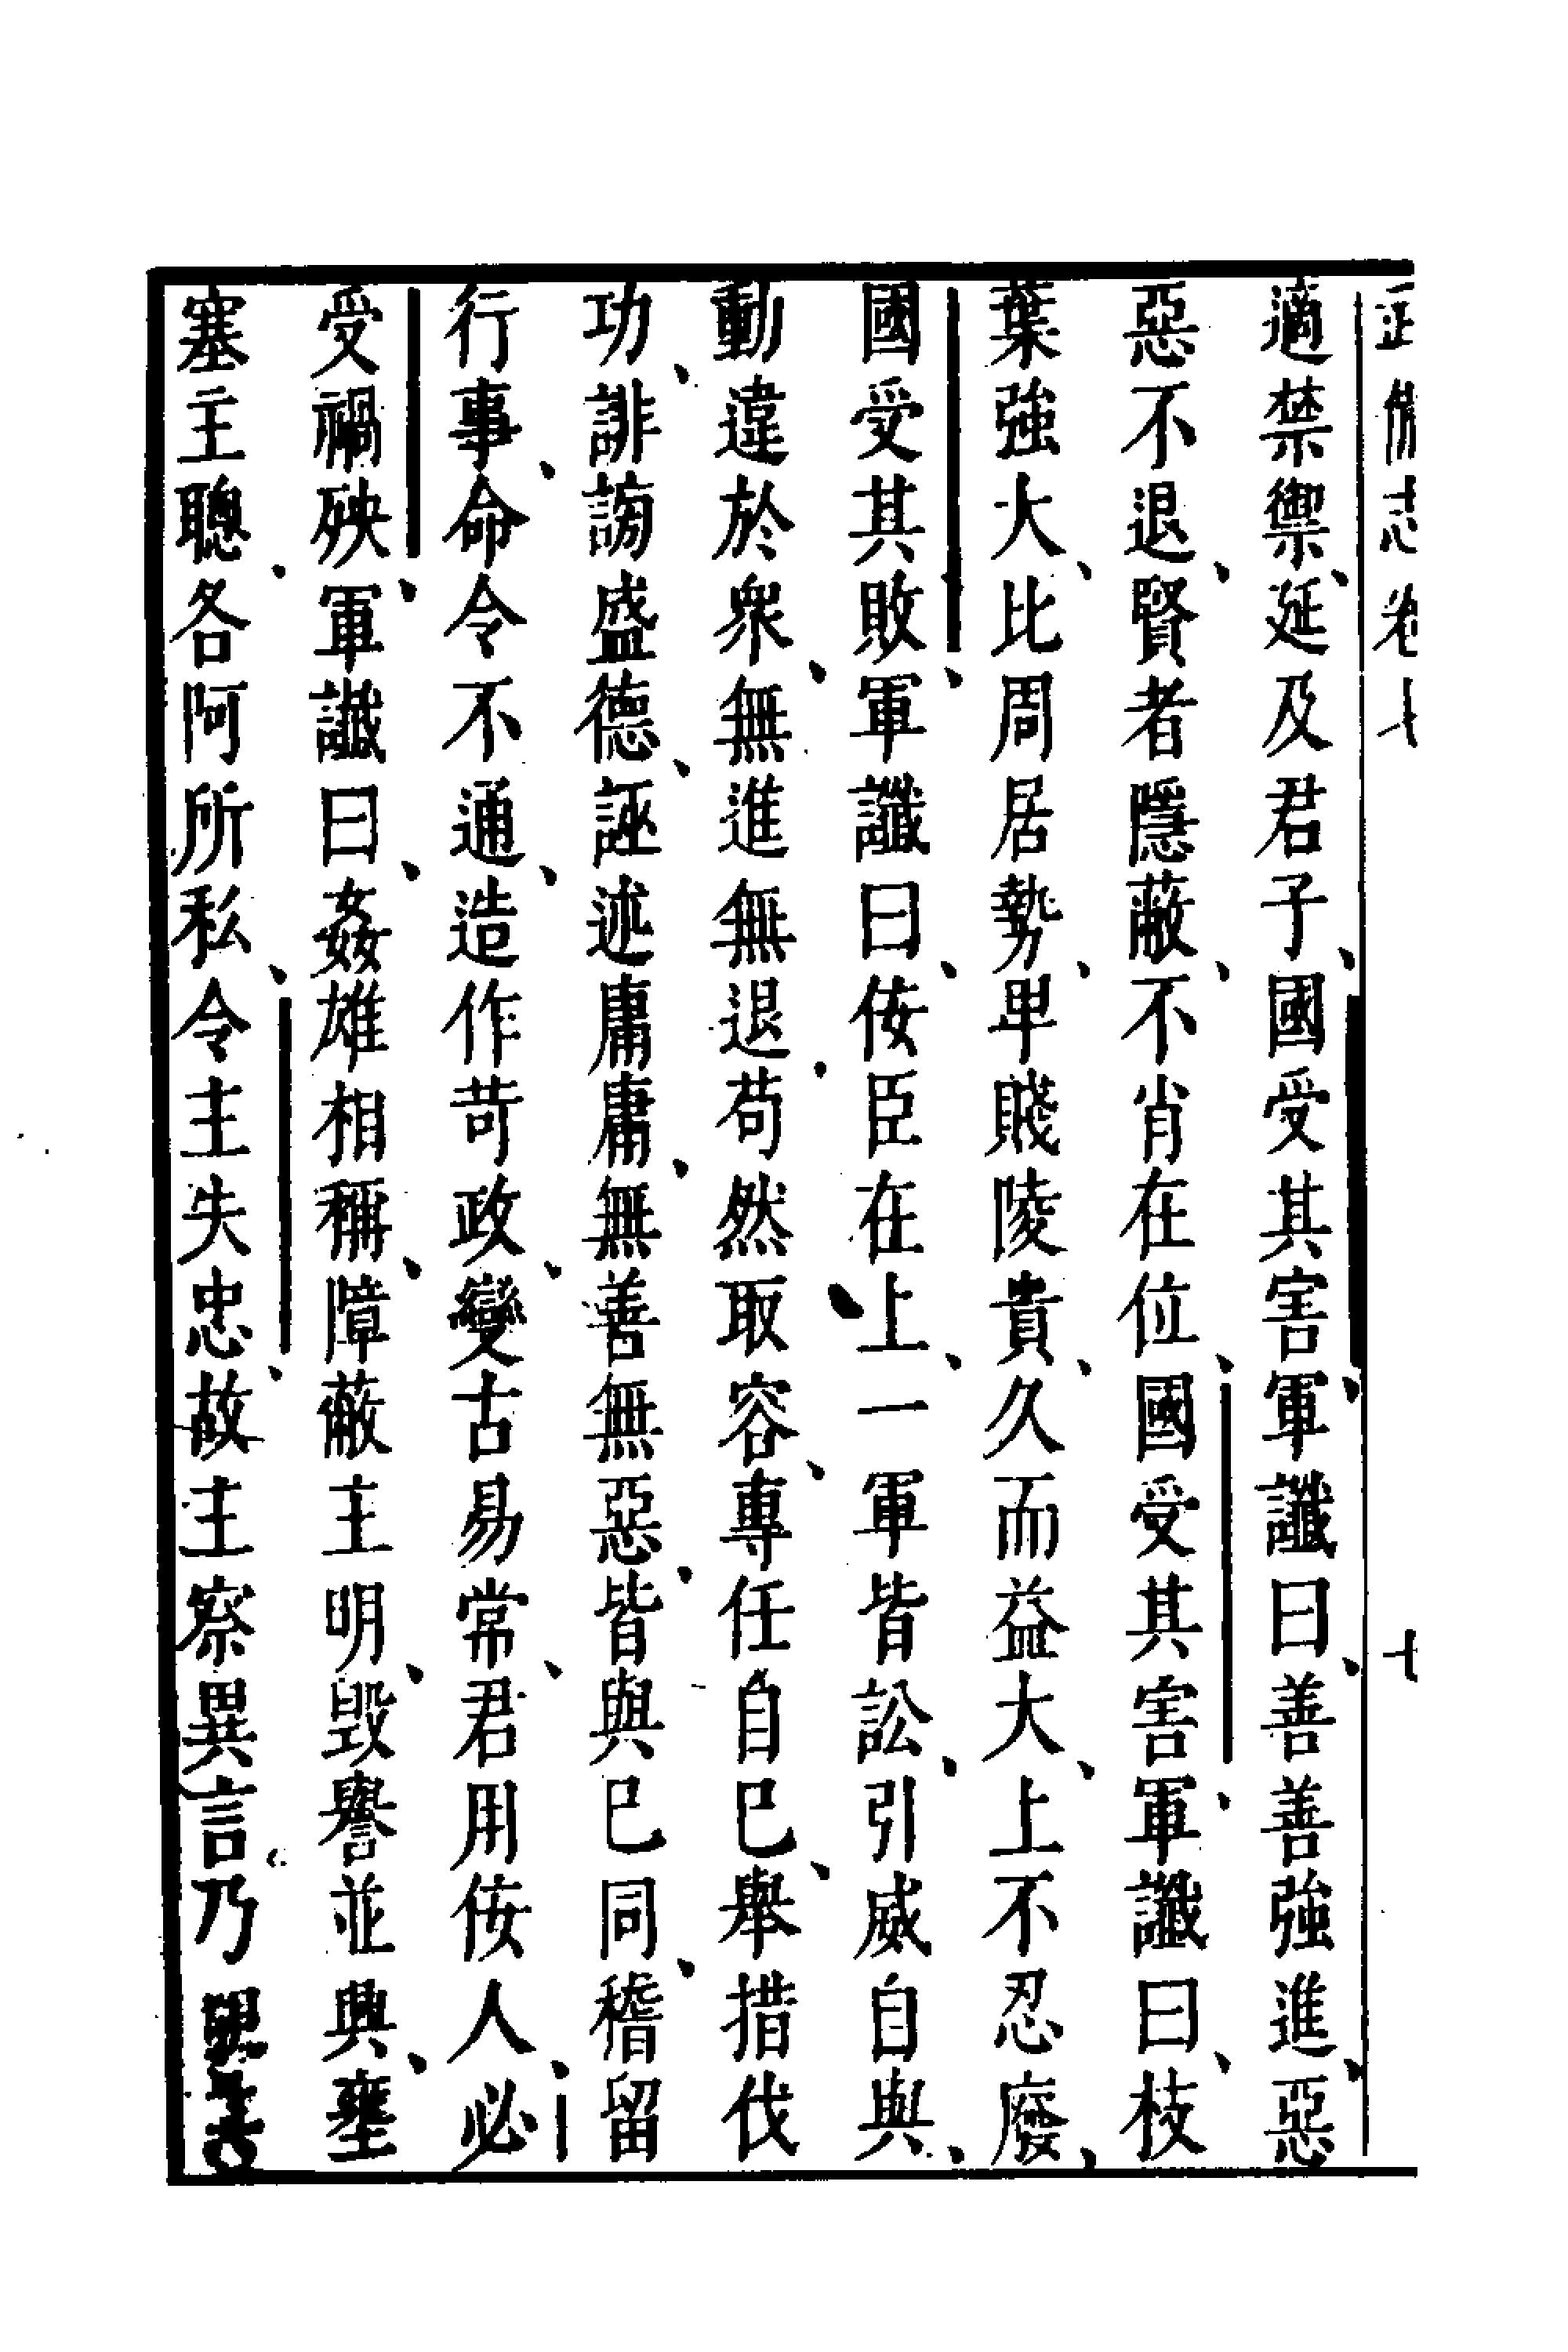 武備志卷 十
適禁禦延及君子國受其害軍讖曰善善強進惡
惡不退賢者隱蔽不肖在位國受其害軍讖曰枝
葉強大比周居勢卑賤陵貴久而益大上不忍廢
國受其敗軍讖曰佞臣在上一軍皆訟引威自與
動違於衆無進無退苟然取容專任自巳舉措伐
功誹謗盛德誣述庸庸無善無惡皆與巳同稽留
行事命令不通造作苛政變古易常君用佞人必
受禍殃軍讖曰姦雄相稱障蔽主明毀譽並興壅
塞主聰各阿所私令主失忠故主察異言乃